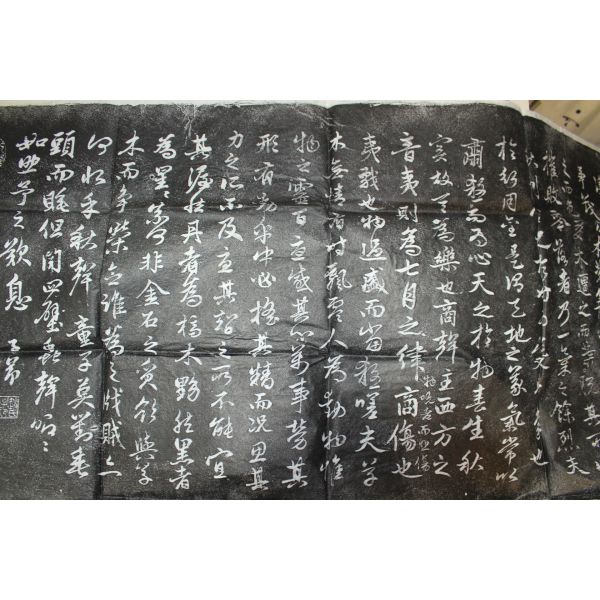 摧敗零落者乃一氣之餘烈夫
於行用金是謂天地之義氣常以
肅殺而為心天之於物春生秋
實故其為樂也商聲主西方之
音夷則為七月之律商傷也
物既老而悲傷
夷戮也物過盛而當殺嗟夫草
木無情有時飄零人為動物惟
物之靈百憂感其心萬事勞其
形有動乎中必搖其精而況思其
力之所不及憂其智之所不能宜
其渥然丹者為槁木黟然黑者
為星星奈何非金石之質欲與草
木而爭榮念誰為之戕賊亦
何恨乎秋聲童子莫對垂
頭而睡但聞四壁蟲聲唧唧
如助予之歎息 子昂